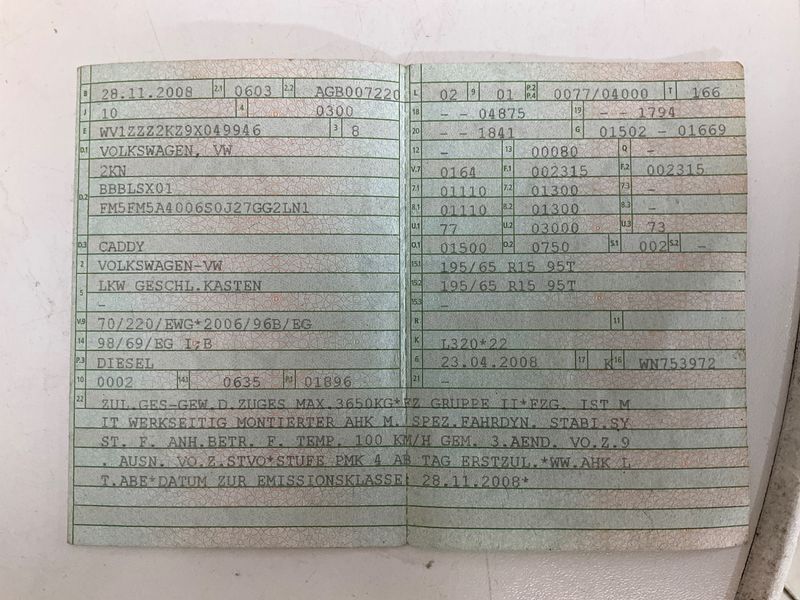 B 28.11.2008 2.1 0603 2.2 AGB007220
J 10 4 0300
E WV1ZZZ2KZ9X049946 3 8
D.1 VOLKSWAGEN, VW
2KN
D.2 BBBLSX01
FM5FM5A4006S0J27GG2LN1
D.3 CADDY
2 VOLKSWAGEN-VW
5 LKW GESCHL.KASTEN
–
V.9 70/220/EWG*2006/96B/EG
14 98/69/EG I;B
P.3 DIESEL
10 0002 14.1 0635 P.1 01896
L 02 9 01 P.2 P.4 0077/04000 T 166
18 – – 04875 19 – – 1794
20 – – 1841 G 01502 – 01669
12 – 13 00080 Q –
V.7 0164 F.1 002315 F.2 002315
7.1 01110 7.2 01300 7.3 –
8.1 01110 8.2 01300 8.3 –
U.1 77 U.2 03000 U.3 73
O.1 01500 O.2 0750 S.1 002 S.2 –
15.1 195/65 R15 95T
15.2 195/65 R15 95T
15.3 –
R 11
K L320*22
6 23.04.2008 17 K 16 WN753972
21 –
22 ZUL.GES-GEW.D.ZUGES MAX.3650KG*FZ GRUPPE II*FZG. IST M
IT WERKSEITIG MONTIERTER AHK M. SPEZ.FAHRDYN. STABI.SY
ST. F. ANH.BETR. F. TEMP. 100 KM/H GEM. 3.AEND. VO.Z.9
. AUSN. VO.Z.STVO*STUFE PMK 4 AB TAG ERSTZUL.*WW.AHK L
T.ABE*DATUM ZUR EMISSIONSKLASSE: 28.11.2008*